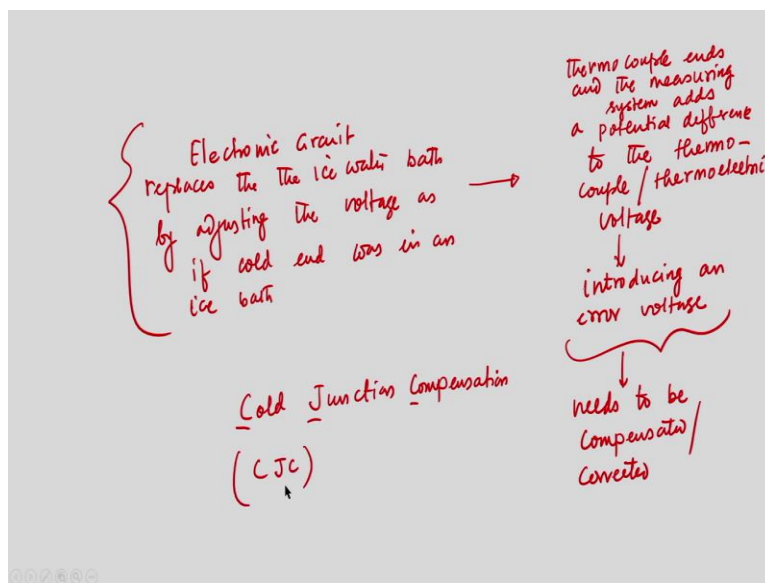 Electronic circuit
replaces the the ice water bath
by adjusting the voltage as
if cold end was in an
ice bath
thermocouple ends
and the measuring
system adds
a potential difference
to the thermo-
couple/thermoelectric
voltage
introducing an
error voltage
needs to be
compensated/
corrected
Cold Junction Compensation
(CJC)